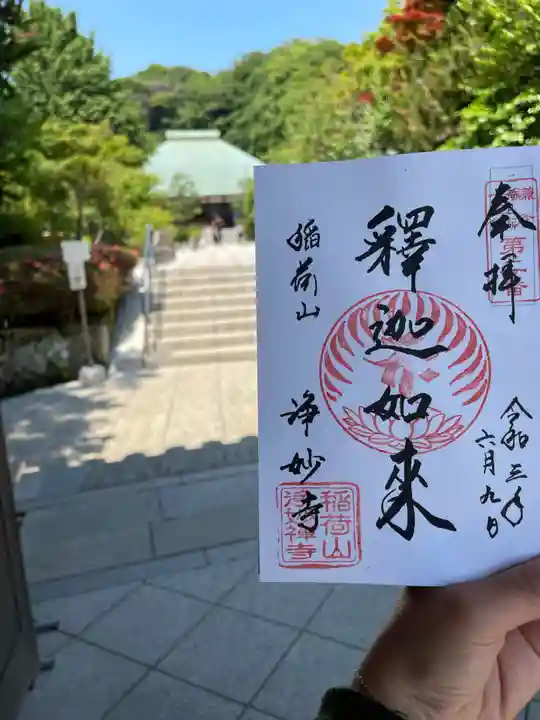 奉拝
第二番
令和三年
六月九日
釋迦如来
稲荷山
浄妙寺
稲荷山
浄妙禅寺